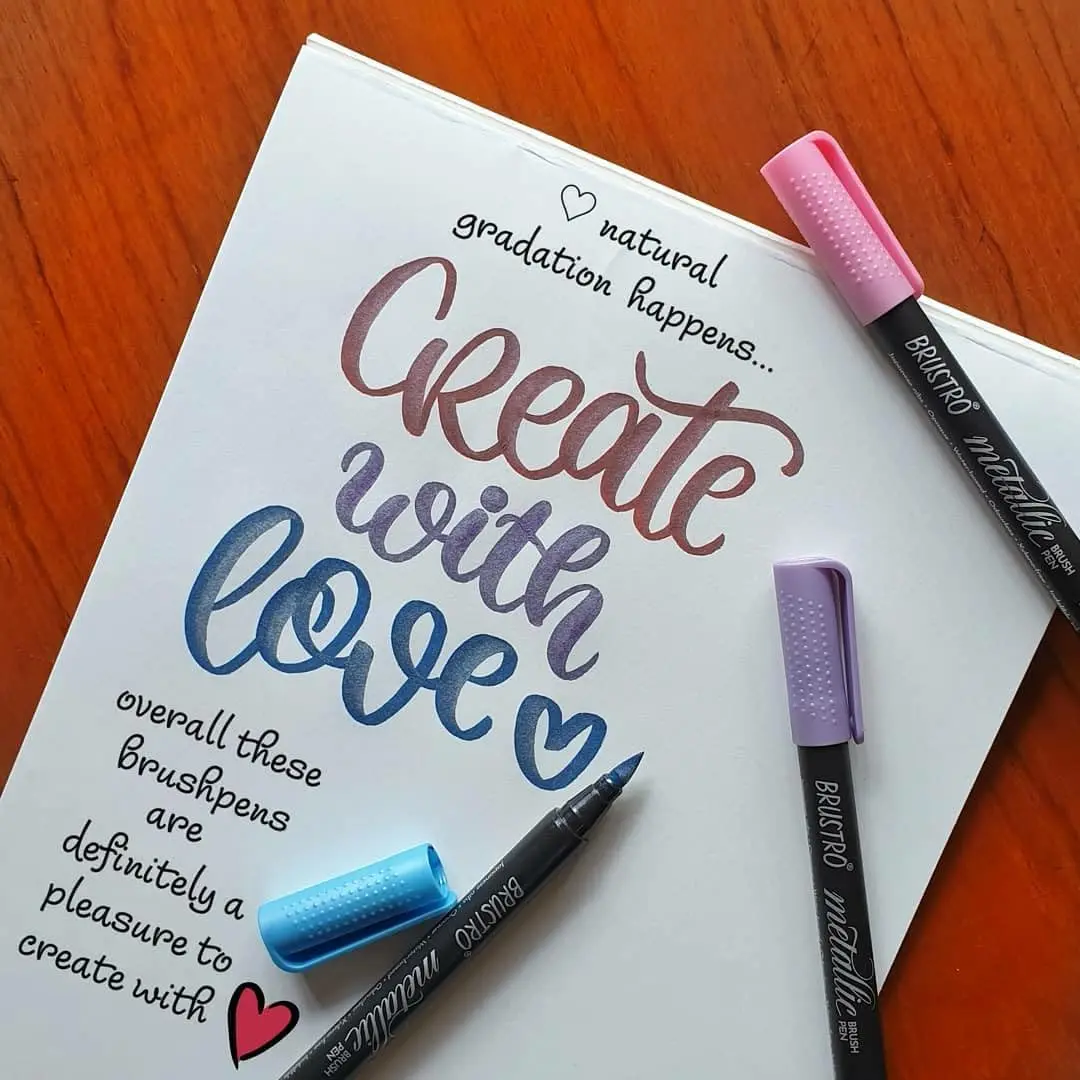 ♡ natural
gradation happens...
Create
with
love
overall these
brushpens
are
definitely a
pleasure to
create with
BRUSTRO®
metallic
BRUSH
PEN
BRUSTRO®
metallic
BRUSH
PEN
BRUSTRO®
metallic
BRUSH
PEN